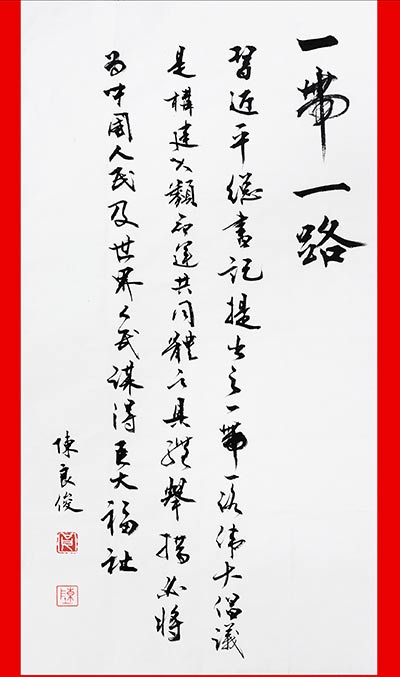 一帶一路
習近平總書記提出之一帶一路偉大倡議
是構建人類命運共同體之具體舉措必將
為中國人民及世界人民謀得巨大福祉
陳良俊